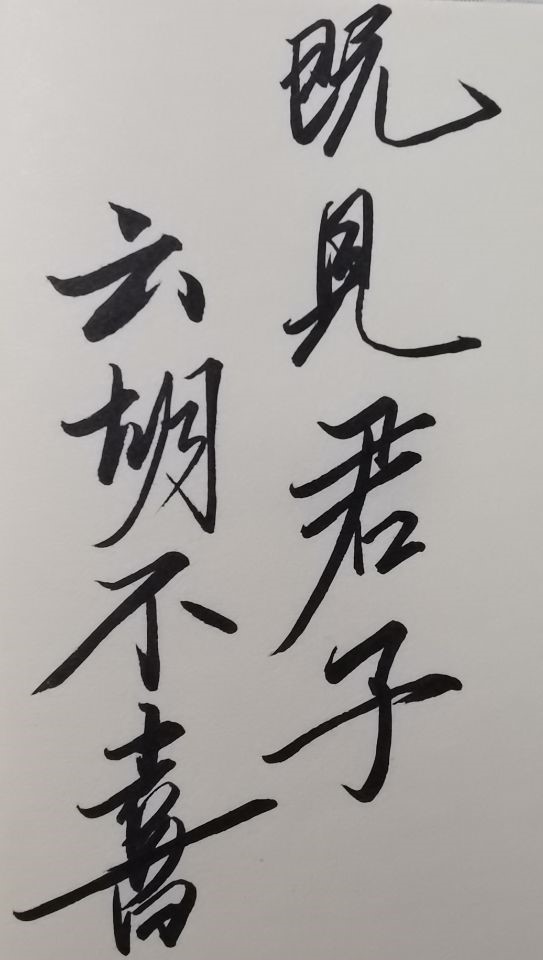 既见君子
云胡不喜